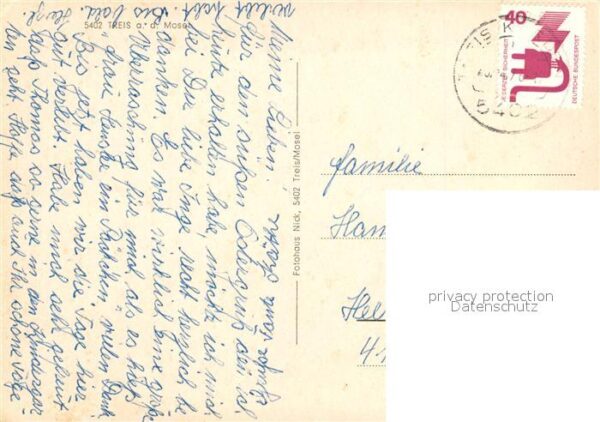 5402 TREIS a. d. Mosel
Meine Lieben!
Für den süßen Ostergruß den ich
heute erhalten habe, möchte ich mich
bei Dir liebe Inge recht herzlich be
danken. Es war wirklich eine große
Überraschung für mich als es hieß
Frau Henske ein Päckchen vielen Dank
Bis jetzt haben wir die Tage hier
gut verlebt. Habe mich sehr gefreut
daß Thomas so gerne in den Kindergar
ten geht. Hoffe auch Ihr schöne
verlebt habt. Bis bald. Herzl.
Grüße
Fotohaus Nick, 5402 Treis/Mosel
40
JEDERZEIT SICHERHEIT
DEUTSCHE BUNDESPOST
TREIS-K
5402
Familie
Ham
Hel
41
privacy protection
Datenschutz